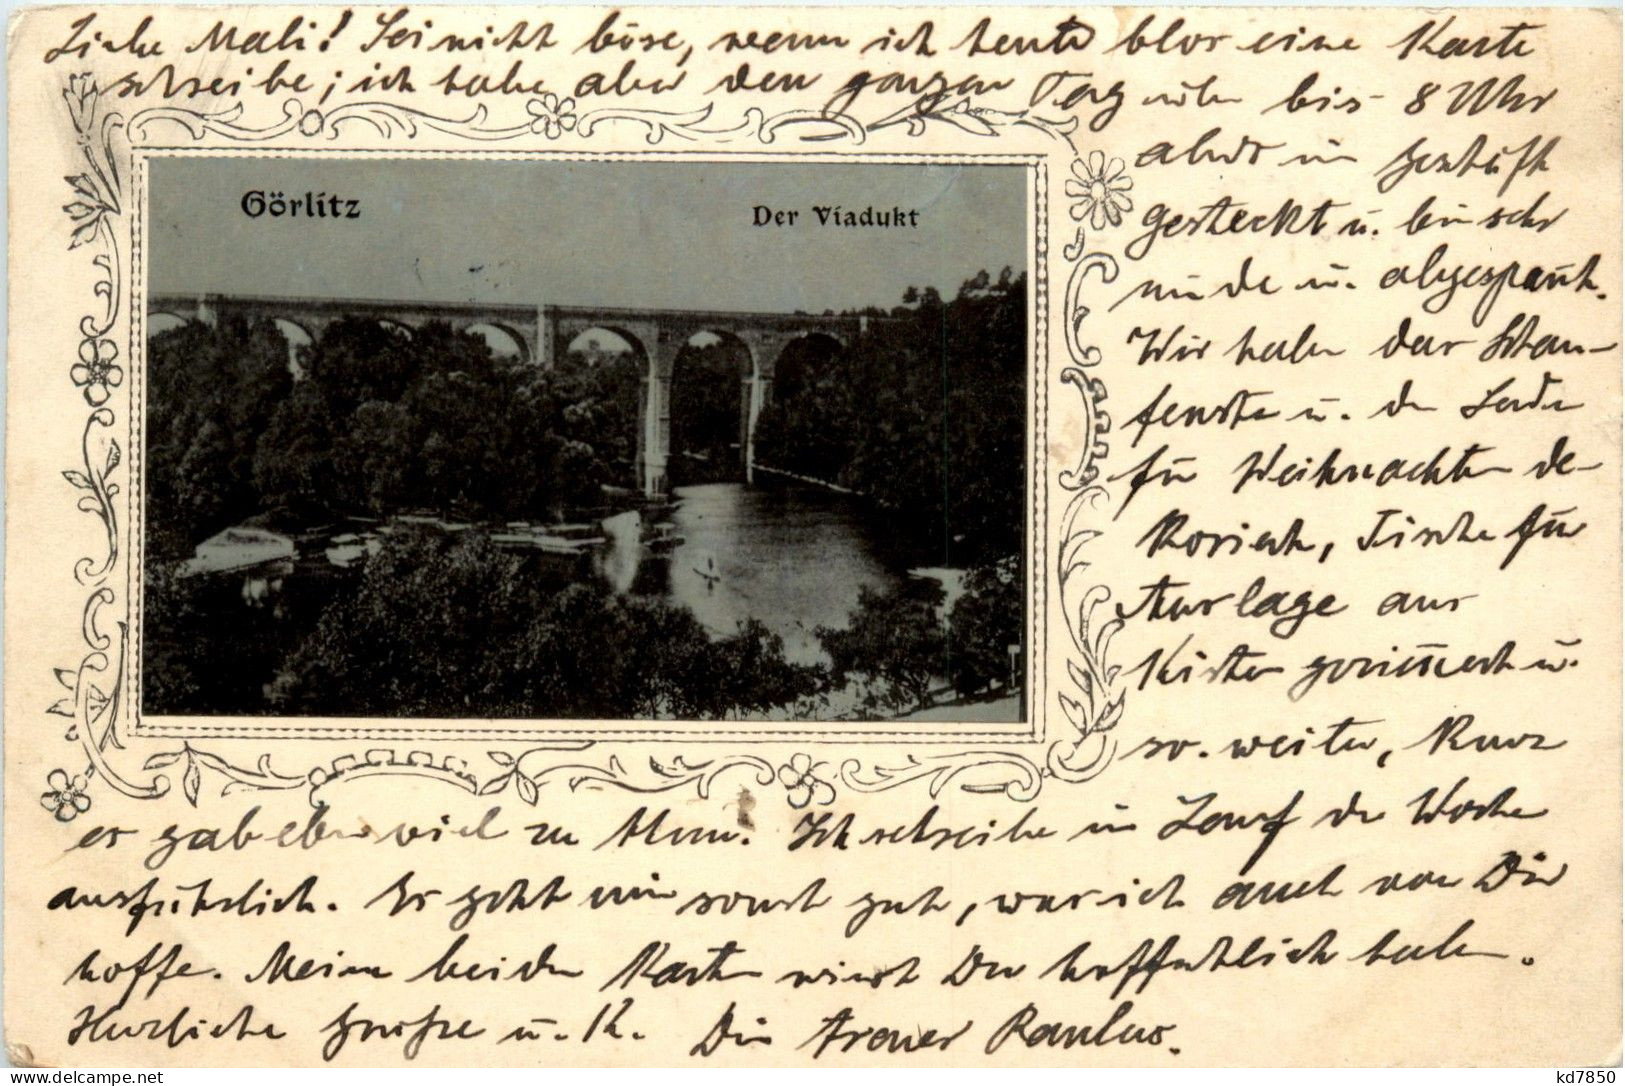 Liebe Mali! Sei nicht böse, wenn ich heute blos eine Karte
schreibe; ich habe aber den ganzen Tag bis 8 Uhr
Görlitz
Der Viadukt
abds im Geschäft
gesteckt u. bin sehr
müde u. abgespannt.
Wir haben das Schau-
fenster u. den Laden
für Weihnachten de-
koriert, Tische für
Auslage aus
Kisten gezimmert u.
so. weiter, Kurz
es gab eben viel zu thun. Ich schreibe im Lauf der Woche
ausführlich. Es geht mir sonst gut, was ich auch von Dir
hoffe. Meine beiden Karten wirst Du hoffentlich haben.
Herzliche Grüsse u. K. Dein treuer Paulus.
kd7850